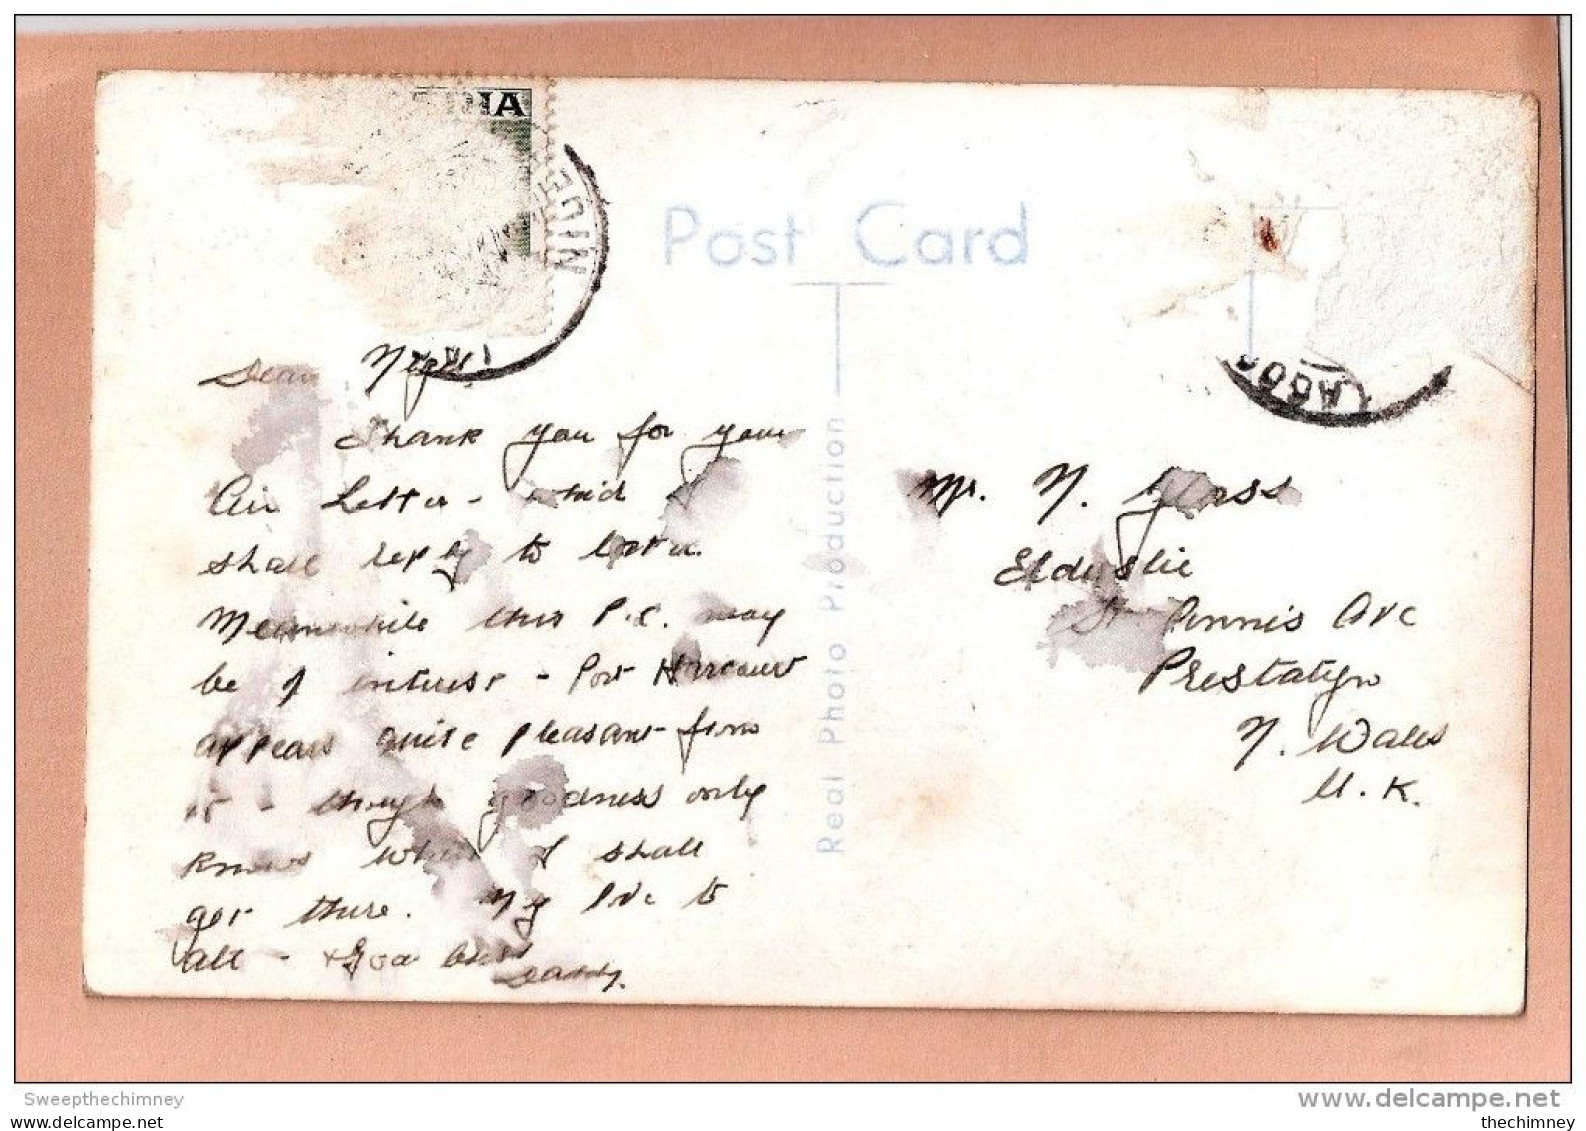 RIA
NIGE
Post Card
LAGOS
Real Photo Production
Dear Nigel.
Thank you for your
Air Letter - which I
shall reply to later.
Meanwhile this P.C. may
be of interest - Port Harcourt
appears quite pleasant from
it - though goodness only
knows when I shall
get there. My love to
all - + God bless
Daddy.
Mr. N. Glass
Elderslie
St Annis Ave
Prestatyn
N. Wales
U.K.
Sweepthechimney
www.delcampe.net
thechimney